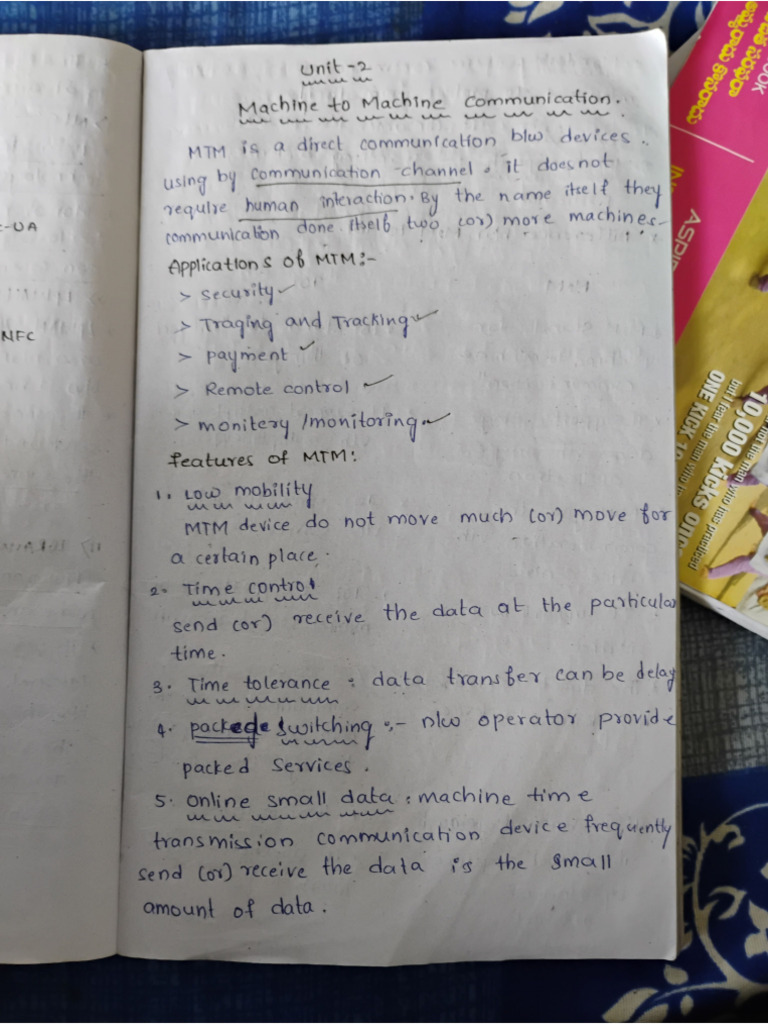 Unit-2
Machine to Machine Communication.
MTM is a direct communication b/w devices.
using by communication channel. it does not
require human interaction. By the name itself they
communication done itself two (or) more machines.
Applications of MTM:-
> Security ✓
> Traging and Tracking ✓
> payment ✓
> Remote control ✓
> monitery /monitoring ✓
features of MTM:
1. Low mobility
MTM device do not move much (or) move for
a certain place.
2. Time control
send (or) receive the data at the particular
time.
3. Time tolerance : data transfer can be delay
4. packede switching :- n/w operator provide
packed services.
5. Online small data : machine time
transmission communication device frequently
send (or) receive the data is the small
amount of data.
C-UA
NFC
BOOK
ASPIR
10,000 KICKS ONCE
but I fear the man who
ONE KICK 10